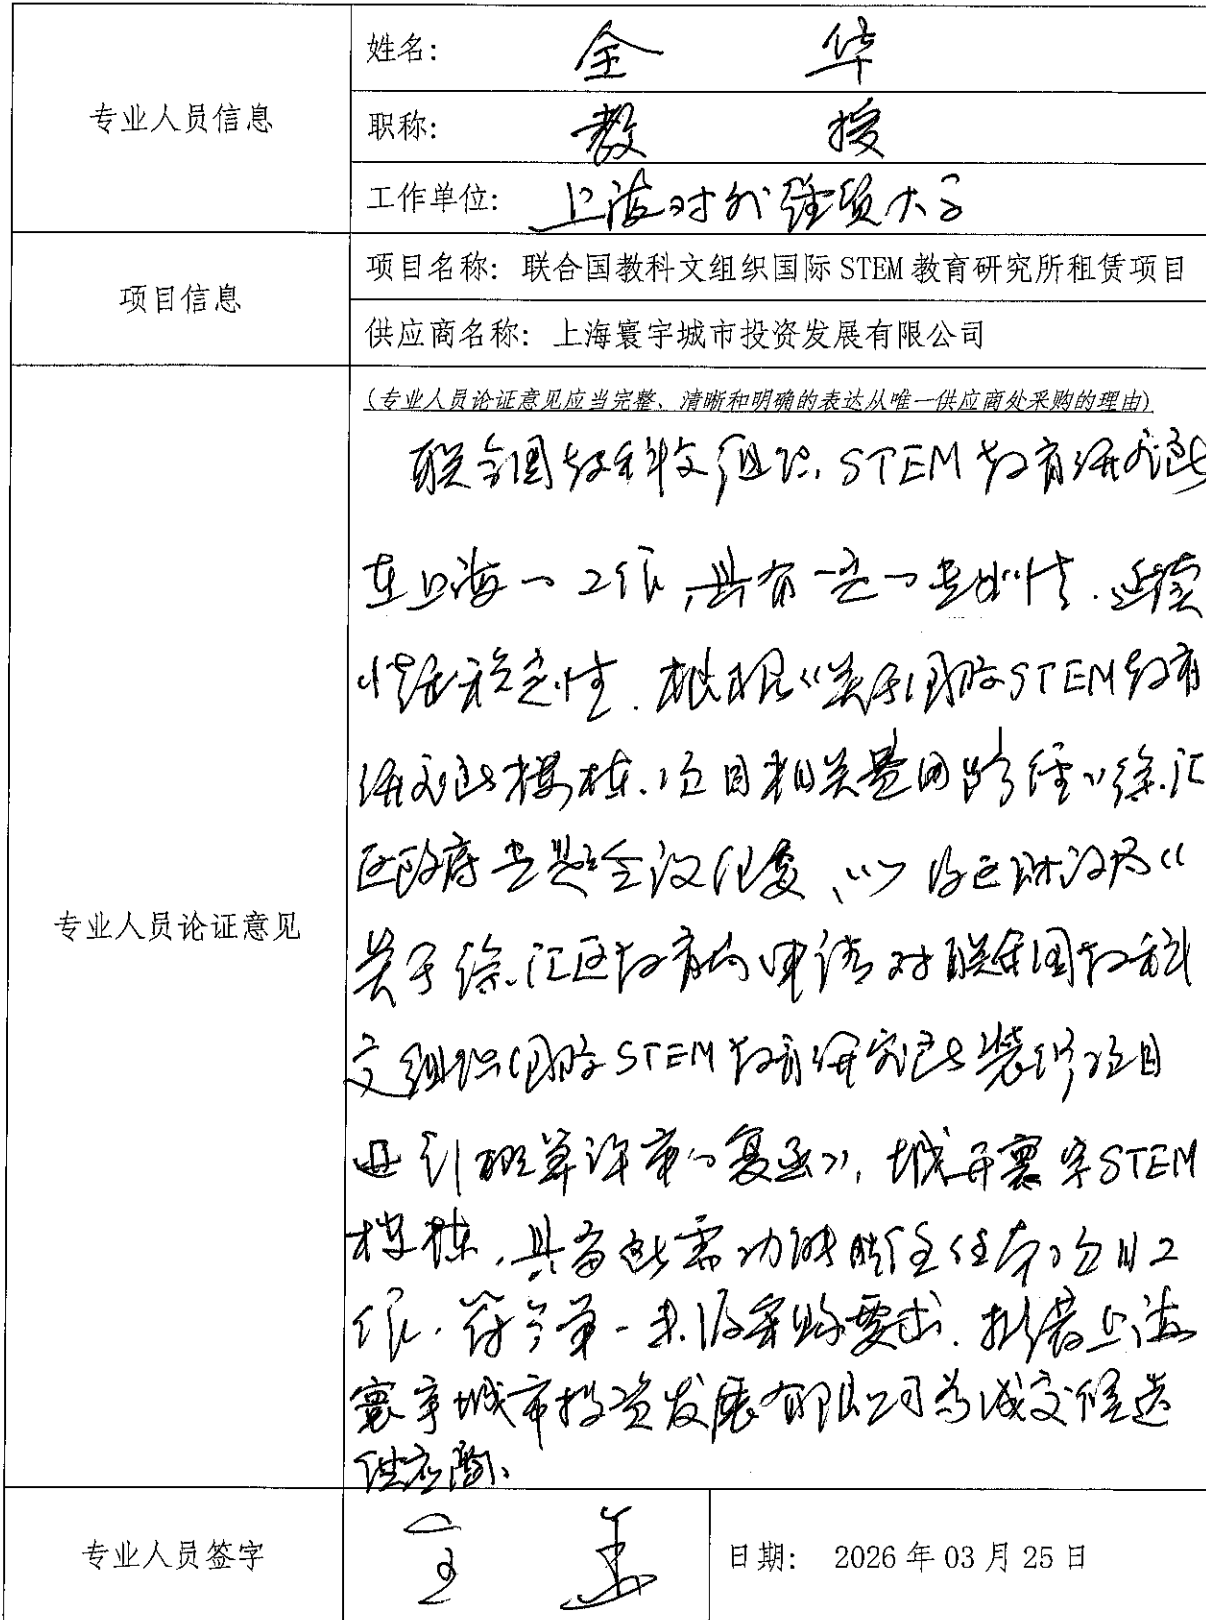 专业人员信息
姓名： 全 华
职称： 教 授
工作单位： 上海对外经贸大学
项目信息
项目名称：联合国教科文组织国际 STEM 教育研究所租赁项目
供应商名称：上海寰宇城市投资发展有限公司
专业人员论证意见
（专业人员论证意见应当完整、清晰和明确的表达从唯一供应商处采购的理由）
联合国教科文组织STEM教育研究所
在上海的工作,具有一定的专业性.延续
性和稳定性.根据《关于国际STEM教育
研究所楼栋项目相关费用路径》徐汇
区政府专题会议纪要、
关于徐汇区教育局申请对联合国教科
文组织国际STEM教育研究所装修项目
概算评审的复函》,城开寰宇STEM
楼栋,具备所需功能胜任本项目工
作.符合单一来源采购要求.推荐上海
寰宇城市投资发展有限公司为成交候选
供应商.
专业人员签字
全 华
日期： 2026 年 03 月 25 日